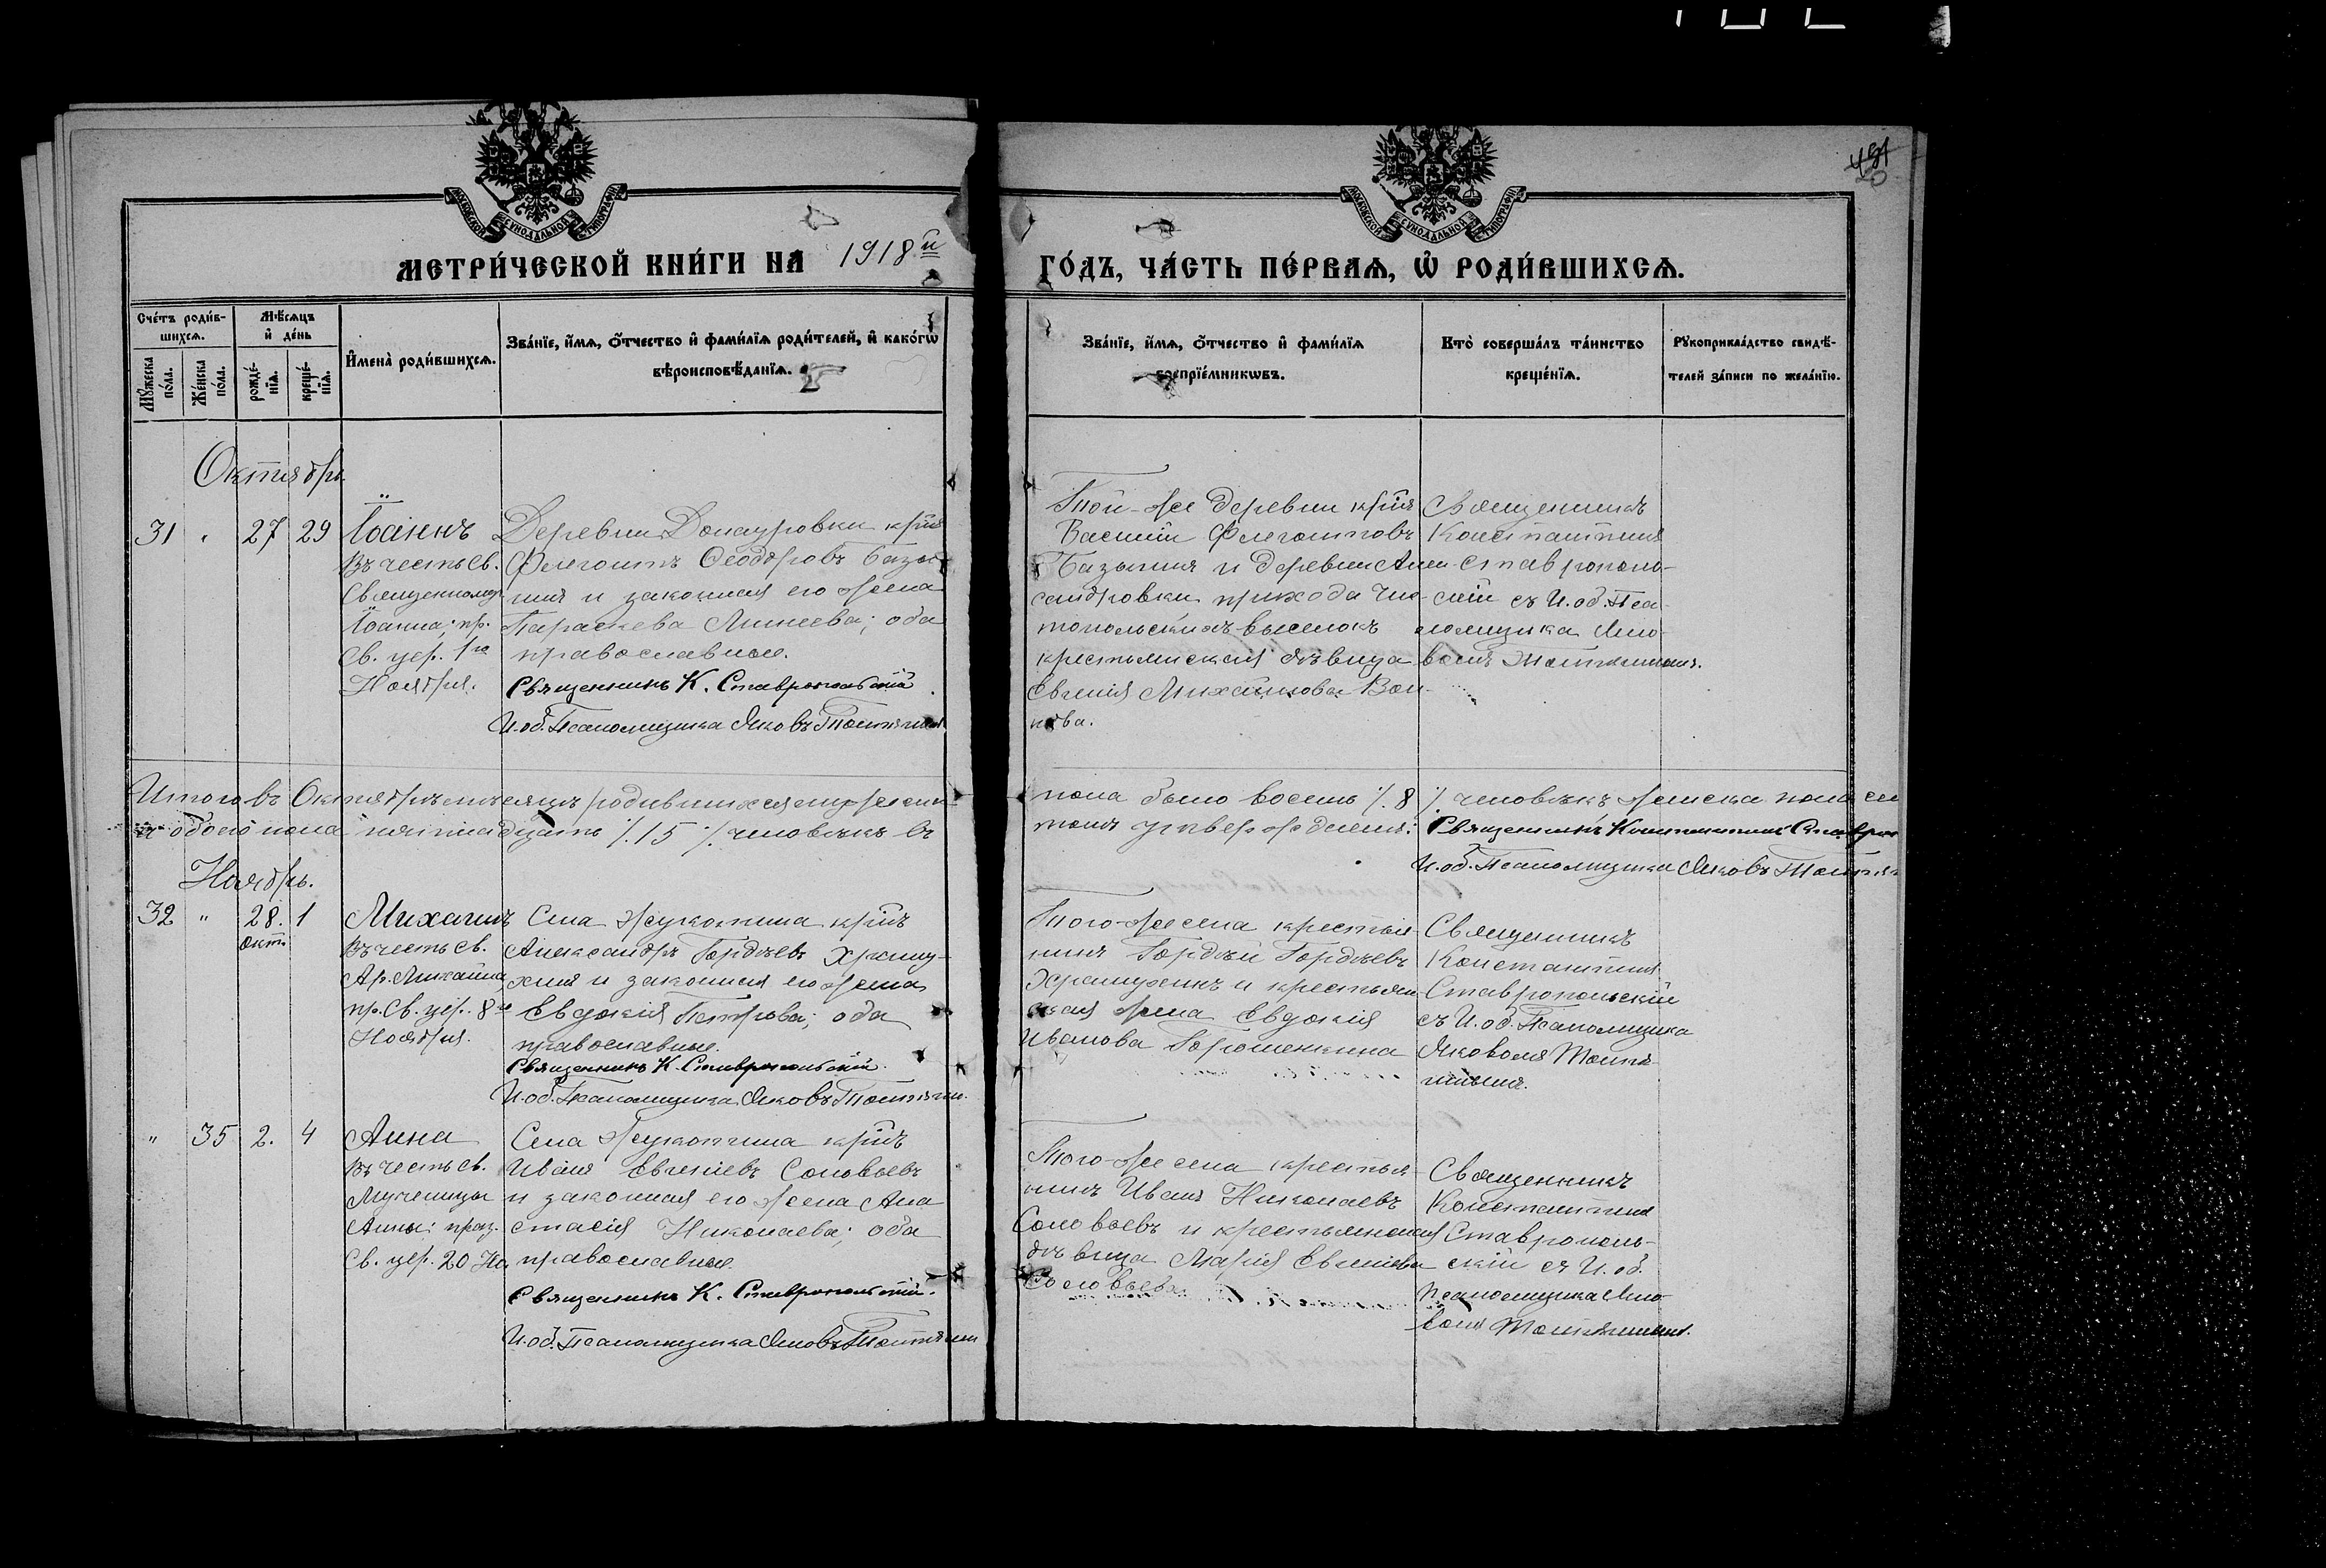 451
20
МОСКОВСКОЙ СѴНОДАЛЬНОЙ ТИПОГРАФІИ
МОСКОВСКОЙ СѴНОДАЛЬНОЙ ТИПОГРАФІИ
МЕТРИ́ЧЕСКОЙ КНИ́ГИ НА 1918 й
ГО́ДЪ, ЧА́СТЬ ПЕ́РВАѦ, Ѽ РОДИ́ВШИХСѦ.
Сче́тъ роди́в-
шихсѧ.
Мꙋ́жеска по́ла.
Же́нска по́ла.
Мѣ́сѧцъ
и҆ де́нь
рожде́-нїѧ.
креще́-нїѧ.
И҆мена̀ роди́вшихсѧ.
Зва́нїе, и҆́мѧ, ѻ҆́тчество и҆ фами́лїѧ роди́телей, и҆ како́гѡ
вѣроисповѣ́данїѧ.
Зва́нїе, и҆́мѧ, ѻ҆́тчество и҆ фами́лїѧ
воспрїе́мникѡвъ.
Кто̀ соверша́лъ та́инство
креще́нїѧ.
Рꙋкоприкла́дство свидѣ́-
телей за́писи по жела́нїю.
Октябрь
31 " 27 29
Іоаннъ
Въ честь Св.
Священному.
Іоанна; пр.
Св. цер. 1го
Ноября.
Деревни Донауровки кр-нъ
Флегонтъ Ѳеодоровъ Базы-
нинъ и законная его жена
Параскева Линеева; оба
православные.
Священникъ К. Ставропольскій
И. об. Псаломщика Яковъ
Той-же деревни кр-нъ
Василій Флегонтовъ
Базынинъ и деревни Алек-
сандровки прихода Чис-
топольскихъ-выселокъ
крестьянская дѣвица
Евгенія Михайлова Вои-
нова.
Священникъ
Константинъ
Ставрополь-
скій съ И. об. Пса-
ломщика Яко-
вомъ
Итого въ Октябрѣ мѣсяцѣ родившихся мужеска
пола было восемь /. 8 /. человѣкъ женска пола сем
а обоего пола пятнадцать /. 15 /. человѣкъ въ
томъ утверждаемъ: Священникъ Константинъ Ставроп
И. об. Псаломщика Яковъ
Ноябрь.
32 " 28. 1
окт.
Михаилъ
Въ честь Св.
Ар. Михаила,
пр. Св. цер. 8го
Ноября.
Села Жукотина кр-нъ
Александръ Гордѣевъ Храму-
хинъ и законная его жена
Евдокія Петрова; оба
православные.
Священникъ К. Ставропольскій
И. об. Псаломщика Яковъ
Того-же села крестья-
нинъ Гордѣй Гордѣевъ
Храмухинъ и крестьян-
ская жена Евдокія
Иванова
Священникъ
Константинъ
Ставропольскій
съ И. об. Псаломщика
Яковомъ
" 35 2. 4
Анна
Въ честь Св.
Мученицы
Анны: праз.
Св. цер. 20 Но.
Села Жукотина кр-нъ
Иванъ Евгеніевъ Соловьевъ
и законная его жена Ана
стасія Николаева; оба
православные.
Священникъ К. Ставропольскій.
И. об. Псаломщика Яковъ
Того-же села крестья-
нинъ Иванъ Николаевъ
Соловьевъ и крестьянская
дѣвица Марія Евгеніева
Соловьева.
Священникъ
Константинъ
Ставрополь-
скій съ И. об.
Псаломщика Яко-
вомъ